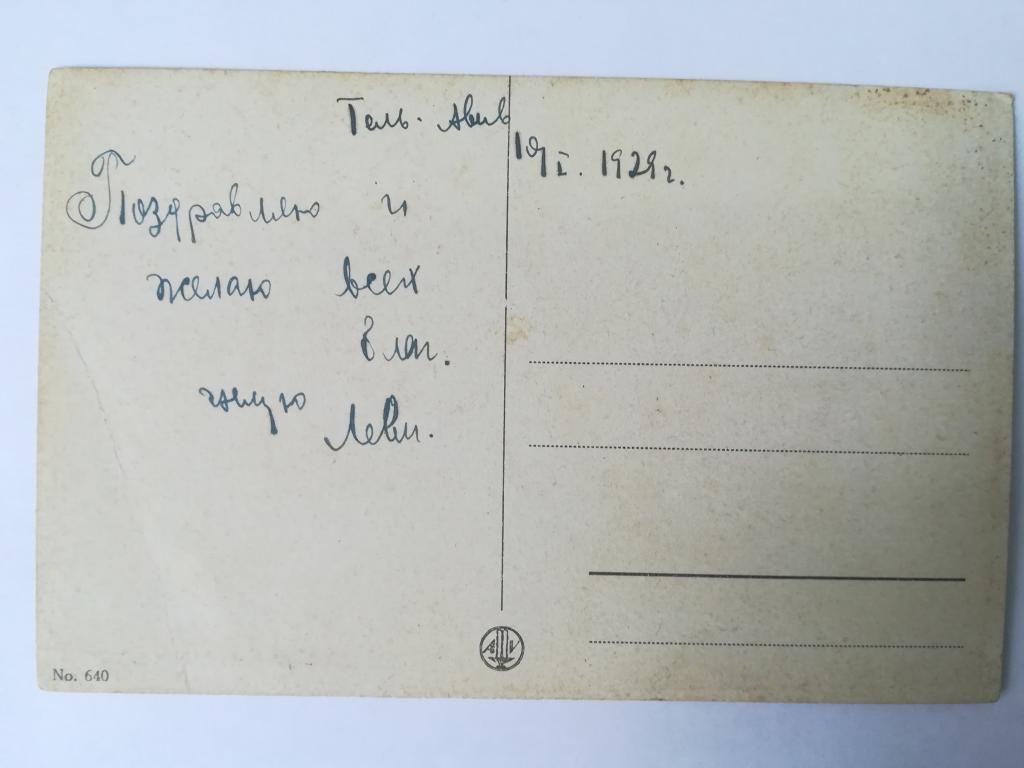 Тель-Авив
19/I. 1929 г.
Поздравляю и
желаю всех
благ.
целую
Леви.
No. 640